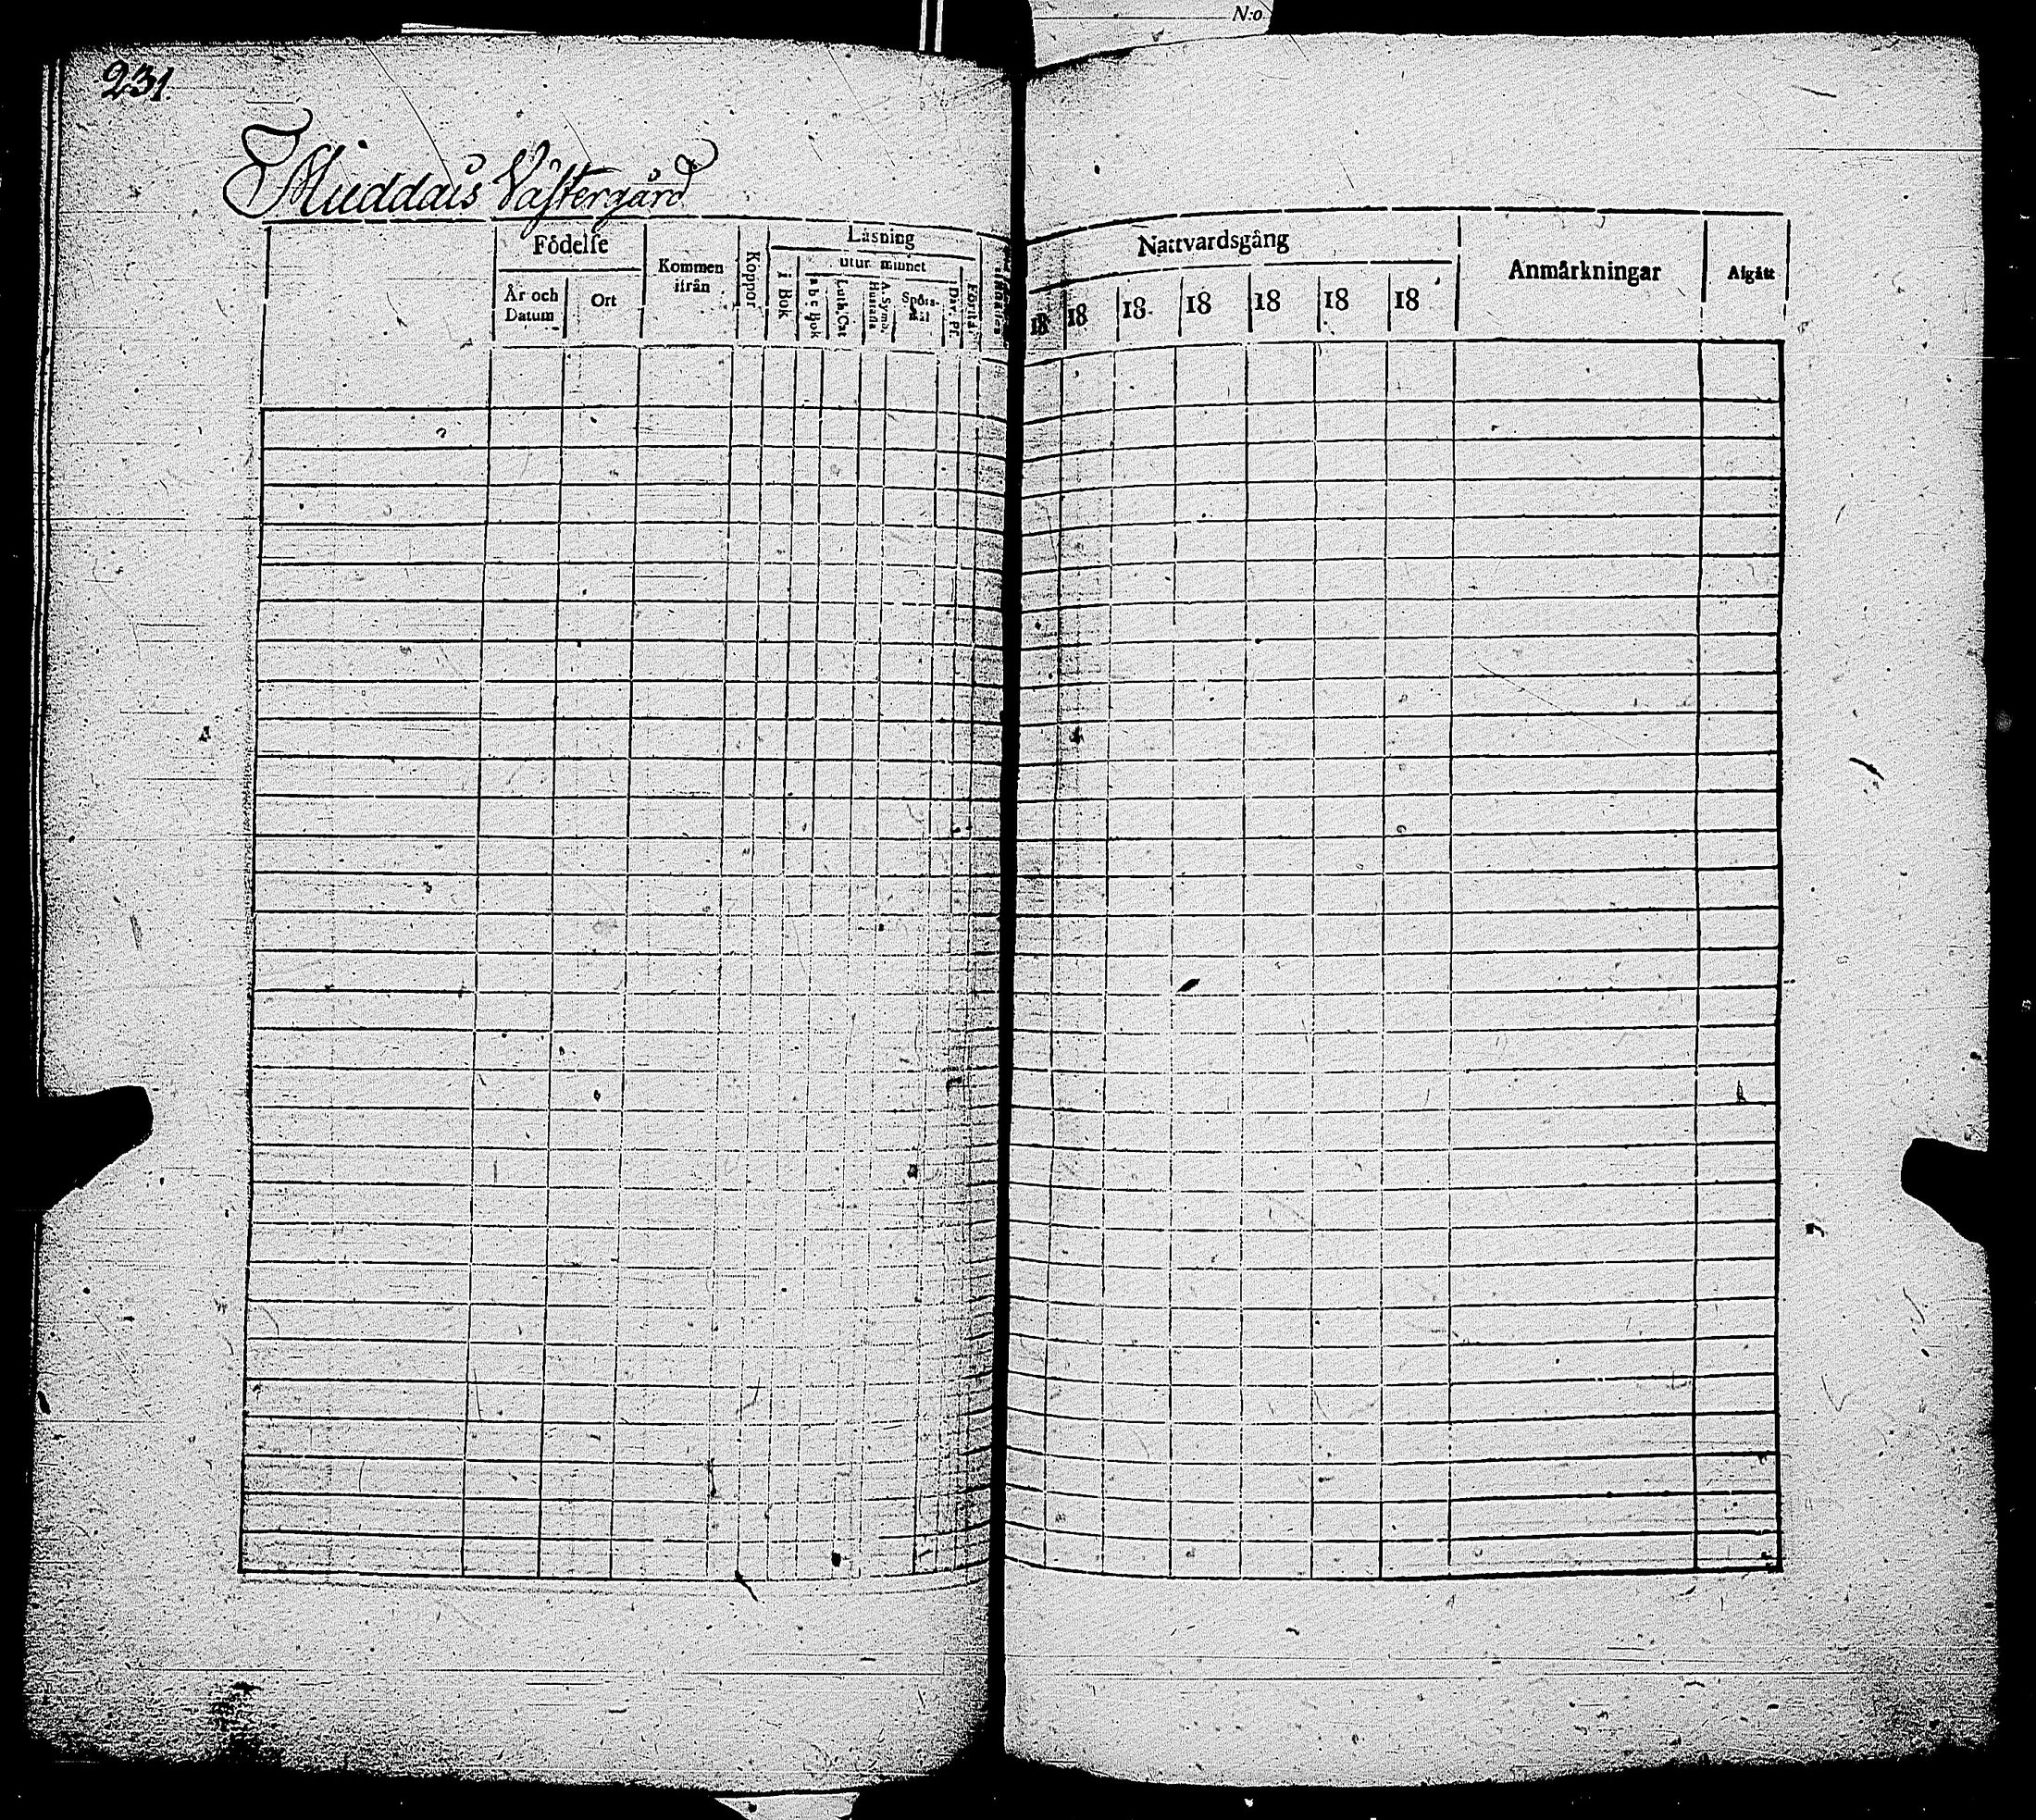 N:o
231.
Muddais Västergård
Födelse
År och Datum
Ort
Kommen ifrån
Koppor
Läsning
i Bok
utur minnet
a b c Bok
Luth. Cat
A. Symb.
Hustafla
Spörs-
mål
Dav. Ps.
Förstå
Nattvardsgång
18 18 18 18 18 18 18
Anmärkningar
Afgått